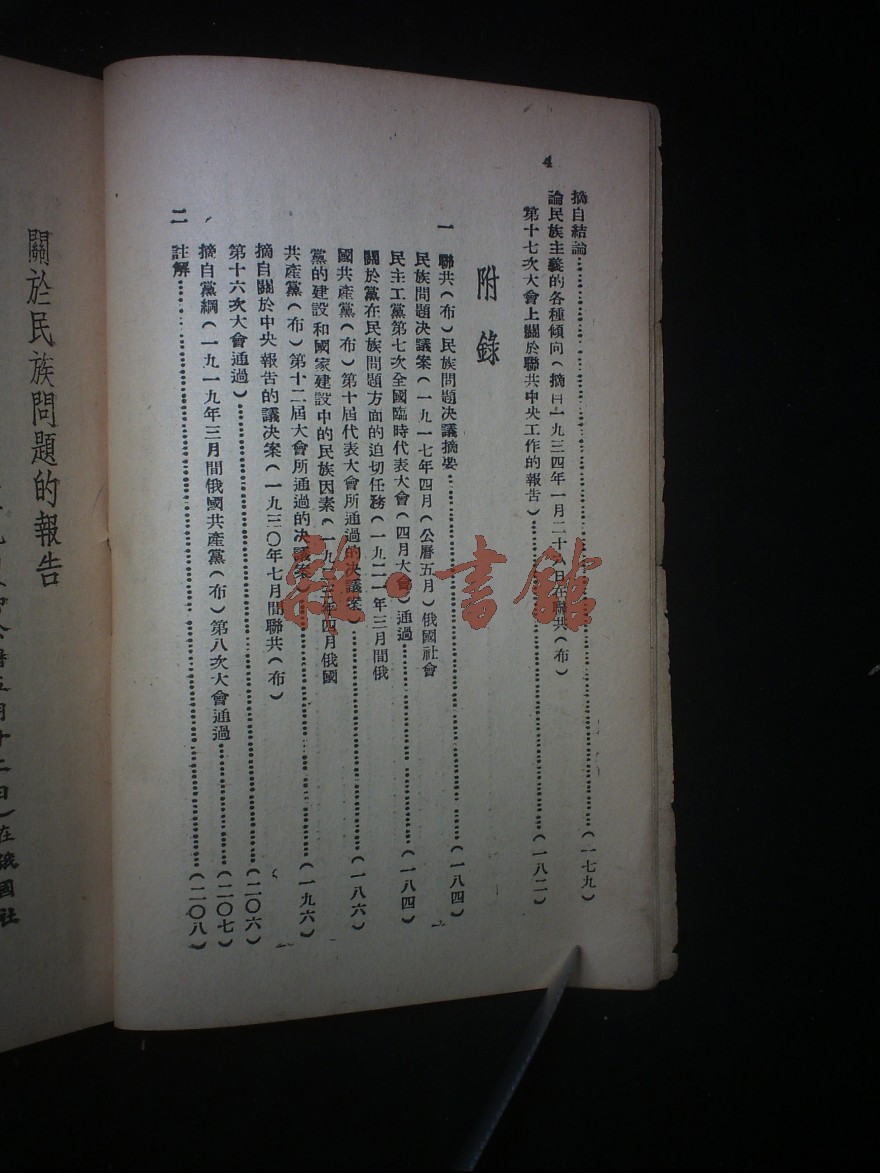 4
摘自結論……(一七九)
論民族主義的各種傾向(摘自一九三四年一月二十六日在聯共(布)
第十七次大會上關於聯共中央工作的報告)……(一八二)
附錄
一 聯共(布)民族問題決議摘要……(一八四)
民族問題決議案(一九一七年四月(公曆五月)俄國社會
民主工黨第七次全國臨時代表大會(四月大會)通過……(一八四)
關於黨在民族問題方面的迫切任務(一九二一年三月間俄
國共產黨(布)第十屆代表大會所通過的決議案)……(一八六)
黨的建設和國家建設中的民族因素(一九二三年四月俄國
共產黨(布)第十二屆大會所通過的決議案)……(一九六)
摘自關於中央報告的議決案(一九三〇年七月間聯共(布)
第十六次大會通過)……(二〇六)
摘自黨綱(一九一九年三月間俄國共產黨(布)第八次大會通過……(二〇七)
二 註解……(二〇八)
關於民族問題的報告
五月十二日)在俄國社
書館